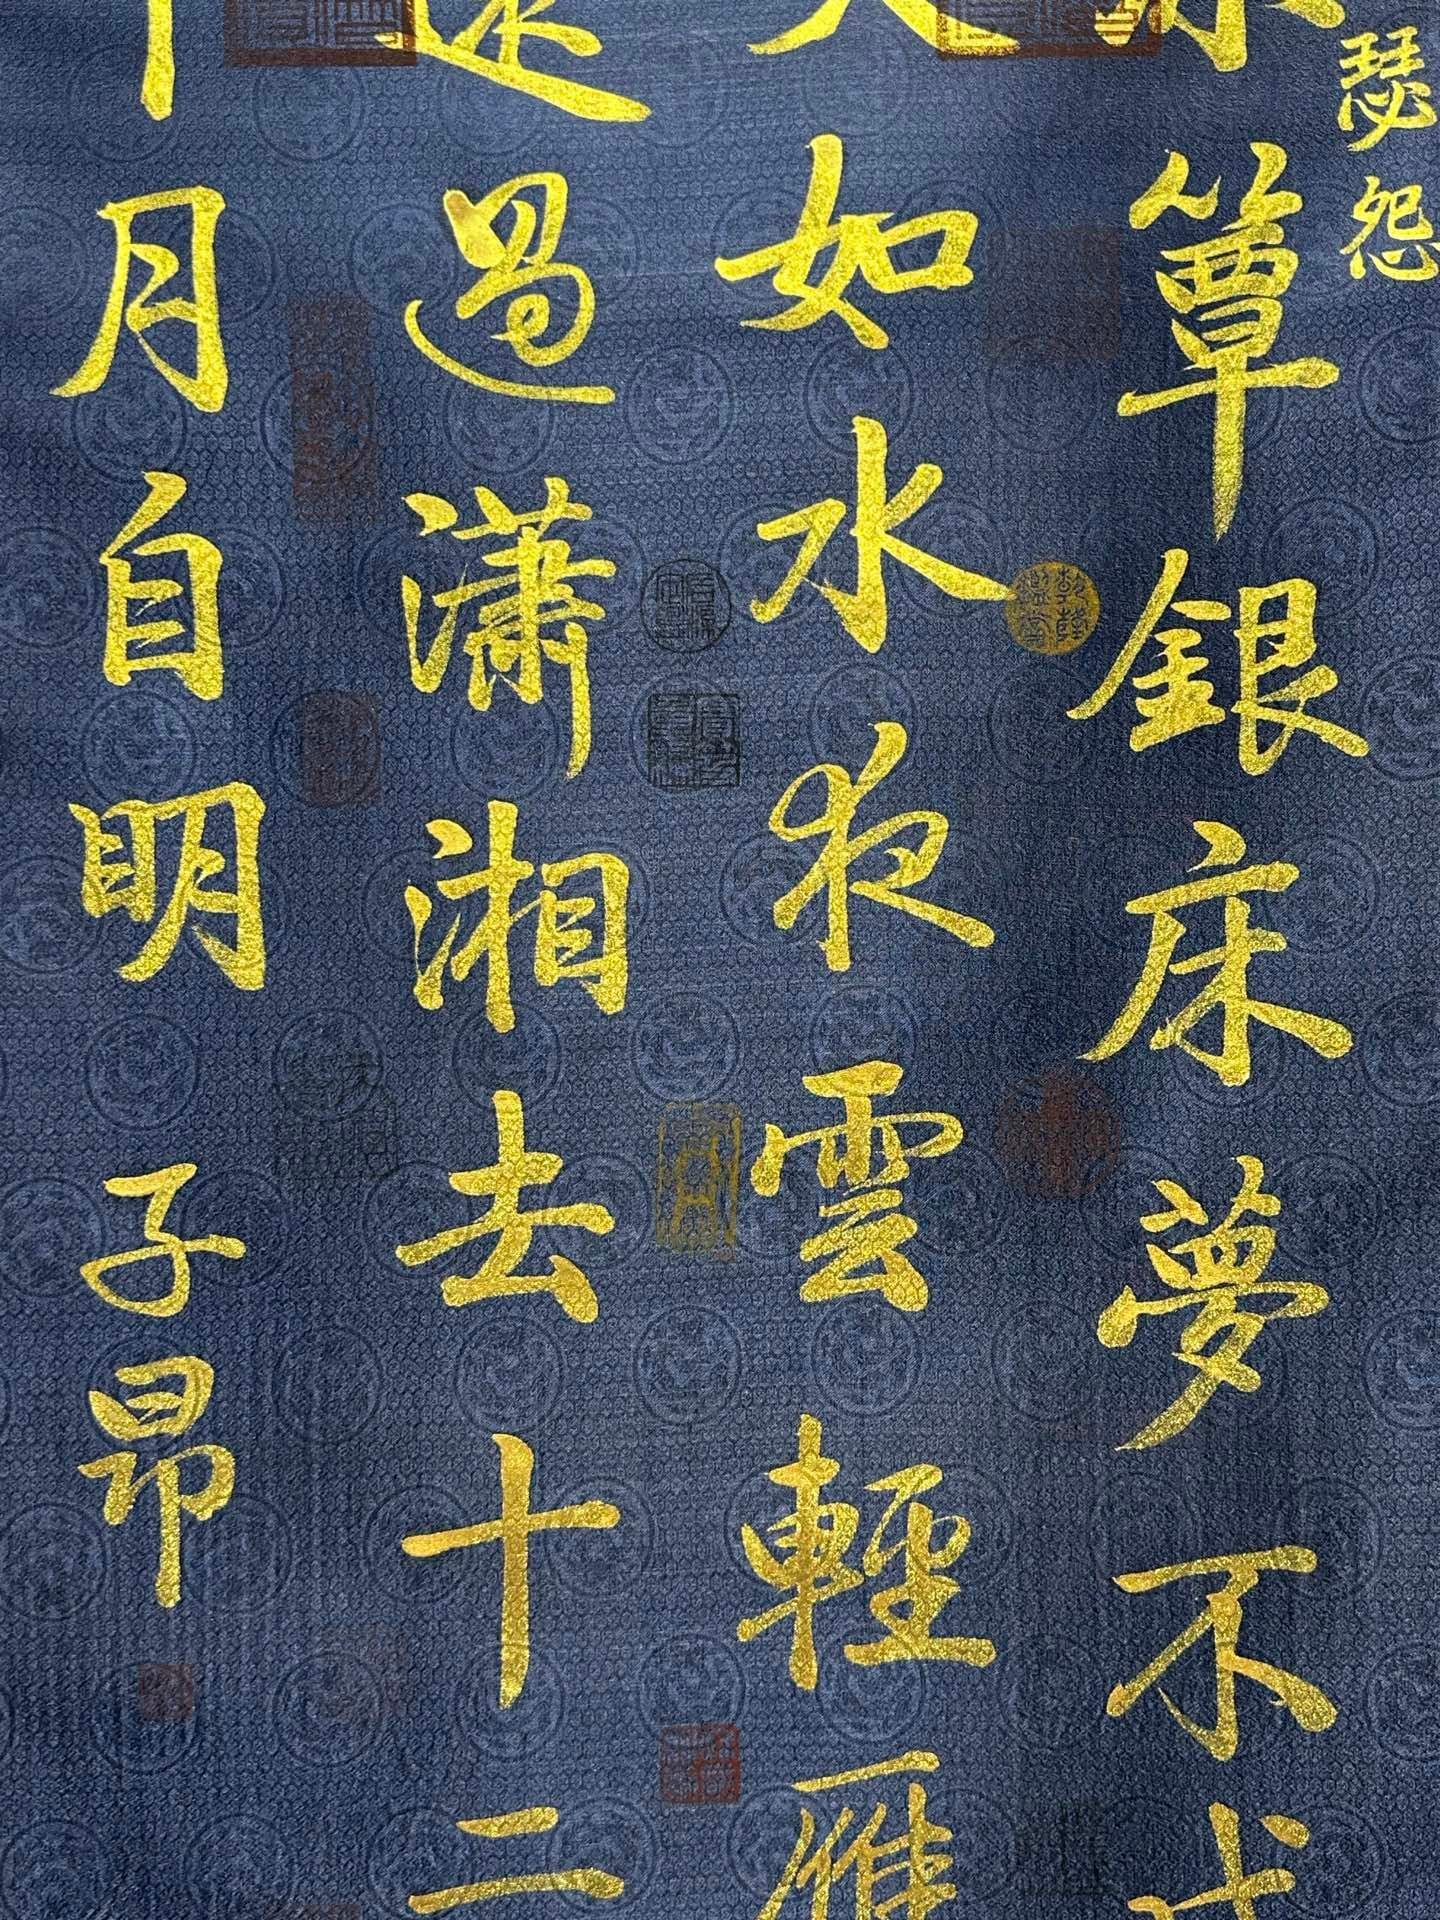 瑟怨
簟銀床夢不
如水夜雲輕雁
遠過瀟湘去十二
月自明
子昂